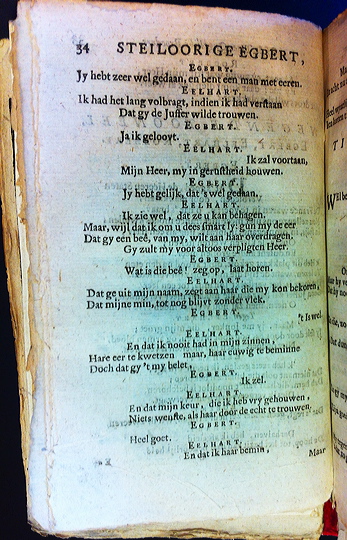 34 STEILOORIGE EGBERT,
EGBERT.
Jy hebt zeer wel gedaan, en bent een man met eeren.
EELHART.
Ik had het lang volbragt, indien ik had verstaan
Dat gy de Juffer wilde trouwen.
EGBERT.
Ja ik geloovt.
EELHART.
Ik zal voortaan,
Mijn Heer, my in gerustheid houwen.
EGBERT.
Jy hebt gelijk, dat 's wel gedaan.
EELHART.
Ik zie wel, dat ze u kan behagen.
Maar, wijl dat ik om u dees smart ly: gun my de eer
Dat gy een beê, van my, wilt aan haar overdragen.
Gy zult my voor altoos verpligten Heer.
EGBERT.
Wat is die beê! zeg op, laat horen.
EELHART.
Dat ge uit mijn naam, zegt aan haar die my kon bekoren,
Dat mijne min, tot nog blijvt zonder vlek.
EGBERT.
't Is wel.
EELHART.
En dat ik nooit had in mijn zinnen,
Hare eer te kwetzen maar, haar euwig te beminne
Doch dat gy 't my belet,
EGBERT.
Ik zel.
EELHART.
En dat mijn keur, die ik heb vry gehouwen,
Niets wenste, als haar door de echt te trouwen.
EGBERT.
Heel goet.
EELHART.
En dat ik haar bemin,
Maar